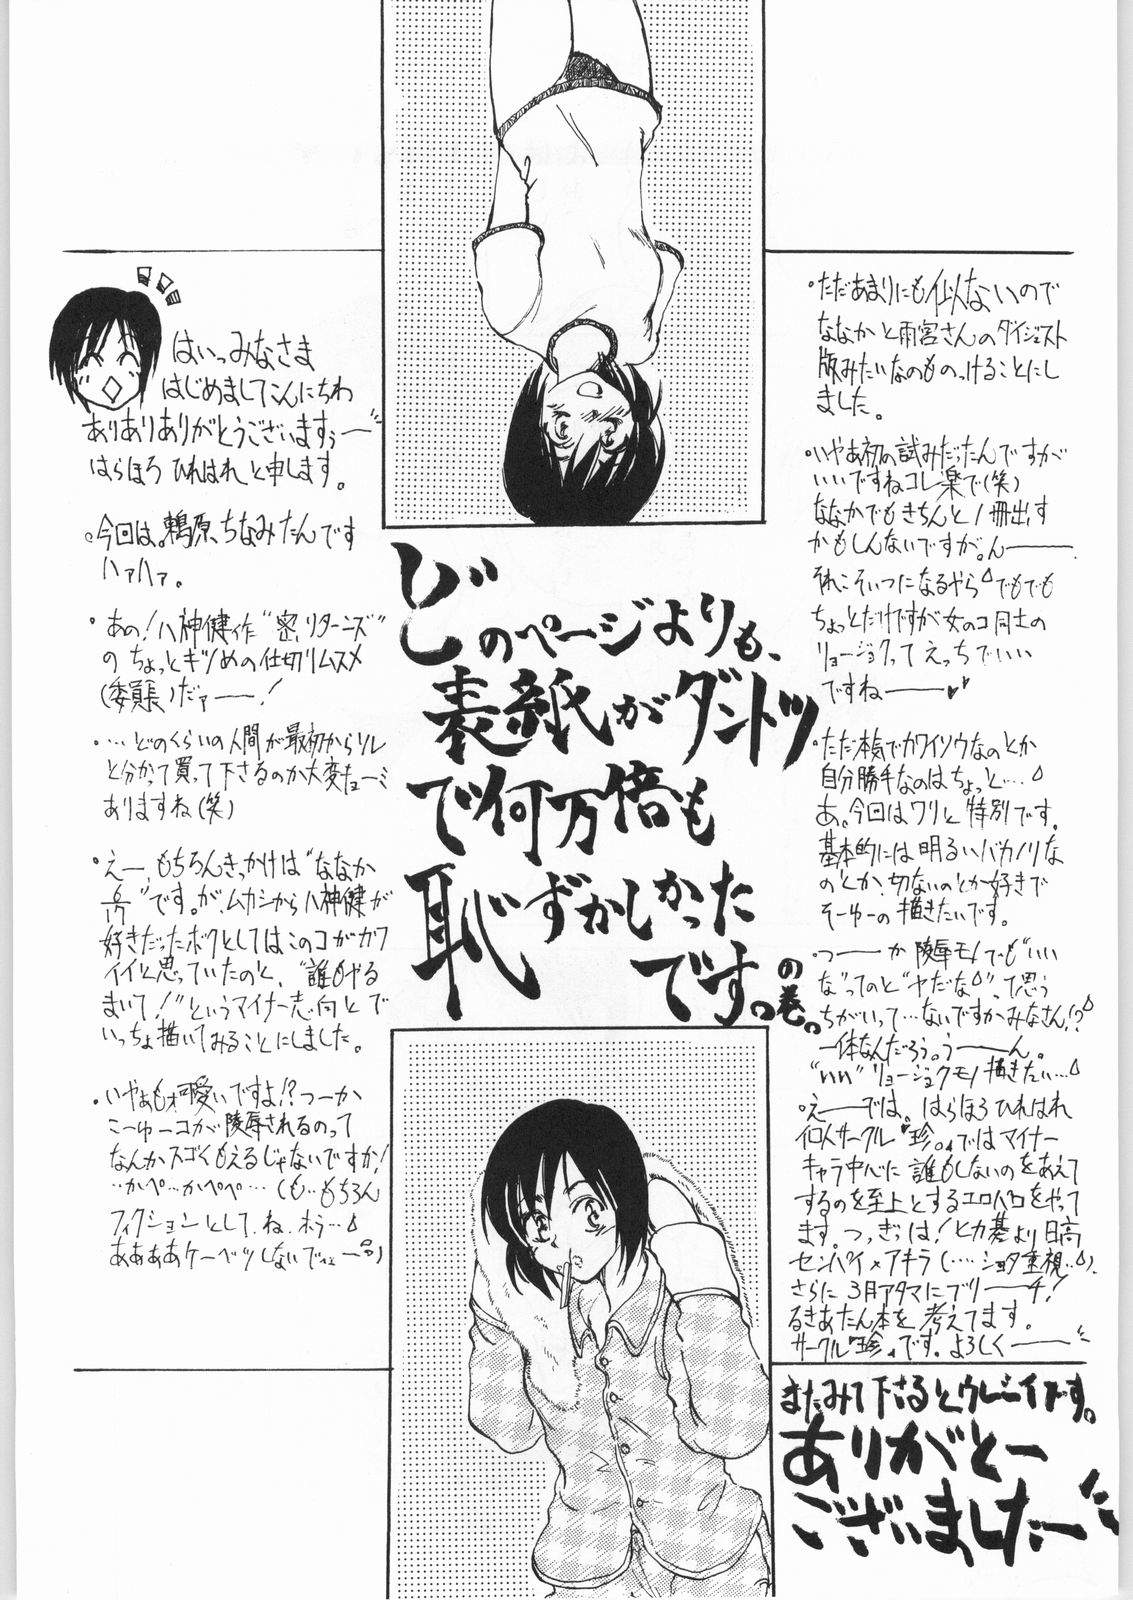 はいっみなさま
はじめましてこんにちわ
ありありありがとうございますぅー
はらほろひれはれと申します。
。今回は。鵜原、ちなみたんです
ハァハァ。
・あの!八神健作"密・リターンズ"
のちょっとギツめの仕切りムスメ
(委員長)だァーー!
・…どのくらいの人間が最初からソレ
と分かって買って下さるのか大変キョーミ
ありますね(笑)
・えー、もちろんきっかけは"ななか
6/17"です。が、ムカシから八神健が
好きだったボクとしてはこのコがカワ
イイと思っていたのと、"誰もやる
まいて!"というマイナー志向とで
いっちょ描いてみることにしました。
・いやぁもォ可愛いですよ!?つーか
こーゆーコが陵辱されるのって
なんかスゴくもえるじゃないですか!
…かぺ…かぺぺ…(も…もちろん
フィクションとして、ね、ホラ…
ああああケーベツしないでェェー)
どのページよりも、
表紙がダントツ
で何万倍も
恥ずかしかった
です。の巻。
・ただあまりにも似ないので
ななかと雨宮さんのダイジェスト
版みたいなのものっけることにし
ました。
・いやあ初の試みだったんですが
いいですねコレ楽で(笑)
ななかでもきちんと1冊出す
かもしんないですが。んーー
それこそいつになるやら でもでも
ちょっとだけですが女のコ同士の
リョージョクってえっちでいい
ですねーー♥♥
・ただ本気でカワイソウなのとか
自分勝手なのはちょっと…
あ。今回はワリと特別です。
基本的には明るいバカノリな
のとか、切ないのとか好きで
そーゆーの描きたいです。
・つーーか陵辱モノでも"いい
な"ってのと"ヤだな"って思う
ちがいって…ないですかみなさん!?
一体なんだろう。うーーん。
"いい"リョージョクモノ描きたい…
。えーーでは。はらほろひれはれ
個人サークル『珍。』ではマイナー
キャラ中心に誰もしないのをあえて
するのを至上とするエロパロをやって
ます。つっぎっは!ヒカ碁より日高
センパイ×アキラ(……ショタ重視…)。
さらに3月アタマにブリーーチ!
るきあたん本を考えてます。
サークル『珍。』です。よろしくーー
またみて下さるとウレシイです。
ありがとー
ございましたー